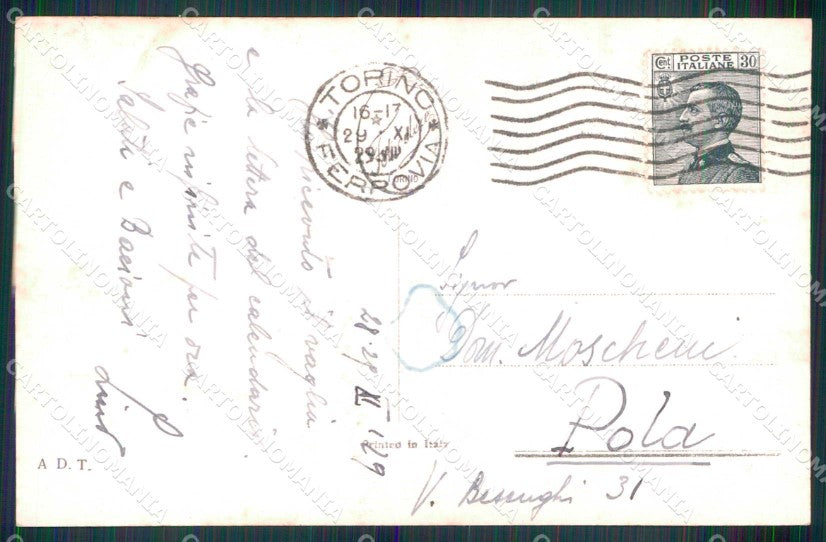 Ho ricevuto il vaglia
e la lettera del calendario.
Grazie infinite per ora.
Saluti e Bacioni
28.29 XI '29
TORINO
16-17
29 XI
29 VIII
FERROVIA
Cent. POSTE ITALIANE 30
Signor
Dom. Moscheni
Pola
V. 31
Printed in Italy
A. D. T.
CARTOLINOMANIA